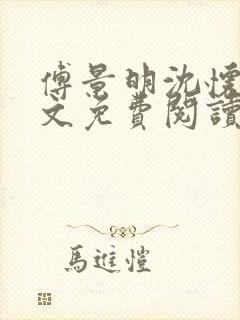 傅景明沈懷
文免費閱讀
馬進愷